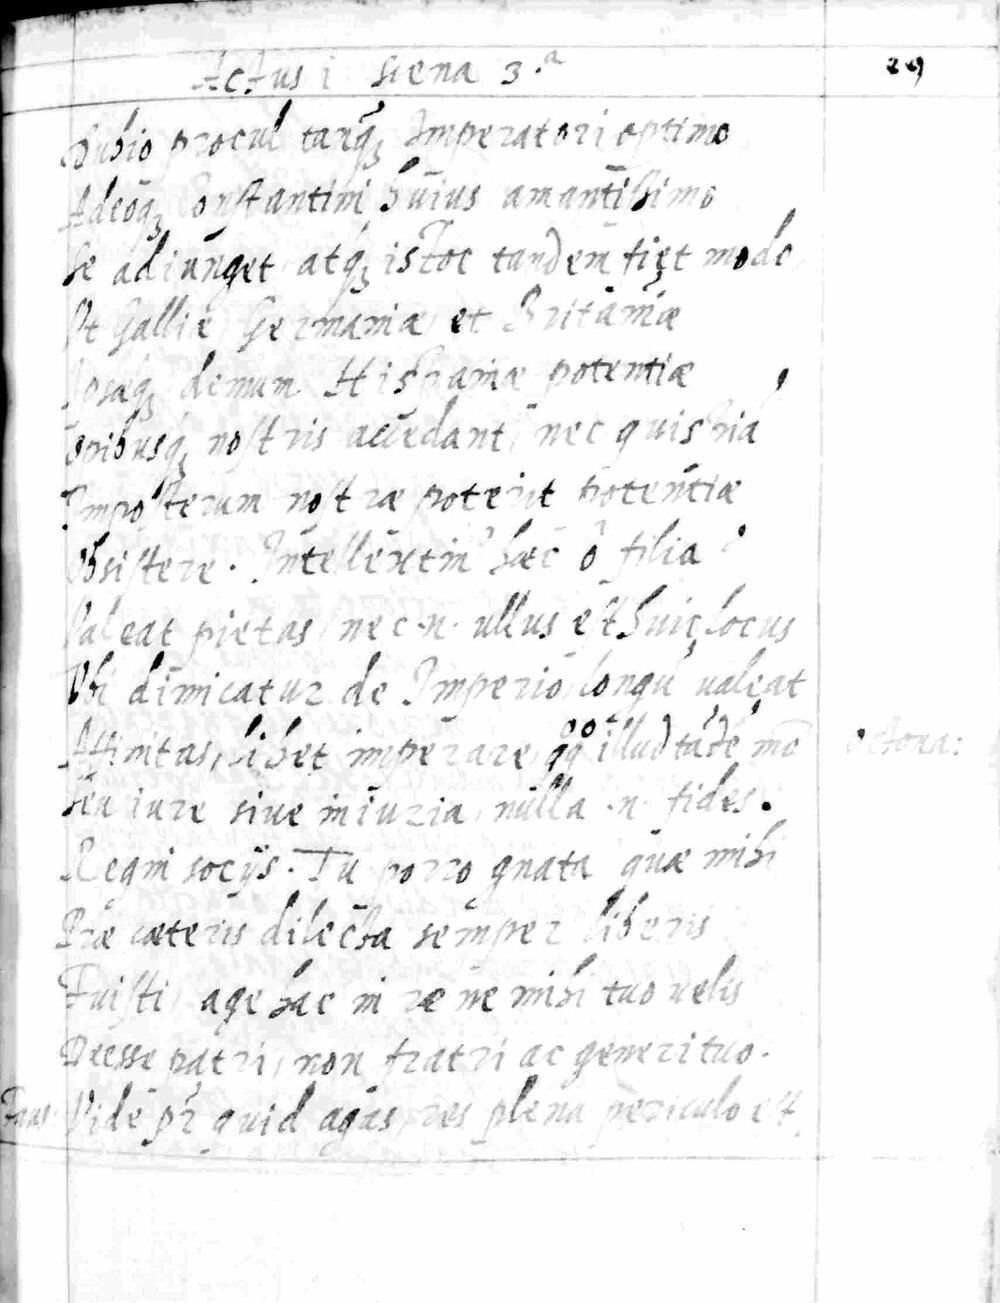 Actus i Scena 3.a 29
Dubio procul tanq; Imperatori optimo
Adeoq; Constantini huius amantissimo
Se adiunget atq; istoc tandem fiet modo
Vt Galliæ Germaniæ et Britaniæ
Ipsæq; demum Hispaniæ potentiæ
nostris accedant, nec quisnā
Imposterum nostræ poterit potentiæ
Obsistere. Intellextin' hæc ô filia?
Valeat pietas, nec .n. ullus est huic locus
Vbi dimicatur de Imperio longū valeat
Affinitas, libet imperare illud mō octona:
Seu iure sive iniuria, nulla .n. fides.
Regni socijs. Tu porro gnata quæ mihi
Præ cæteris dilecta semper liberis
Fuisti, age hac in re ne mihi tuo velis
Deesse patri, non fratri ac generi tuo.
Faus Vide pr̄ quid agas, res plena periculo est.